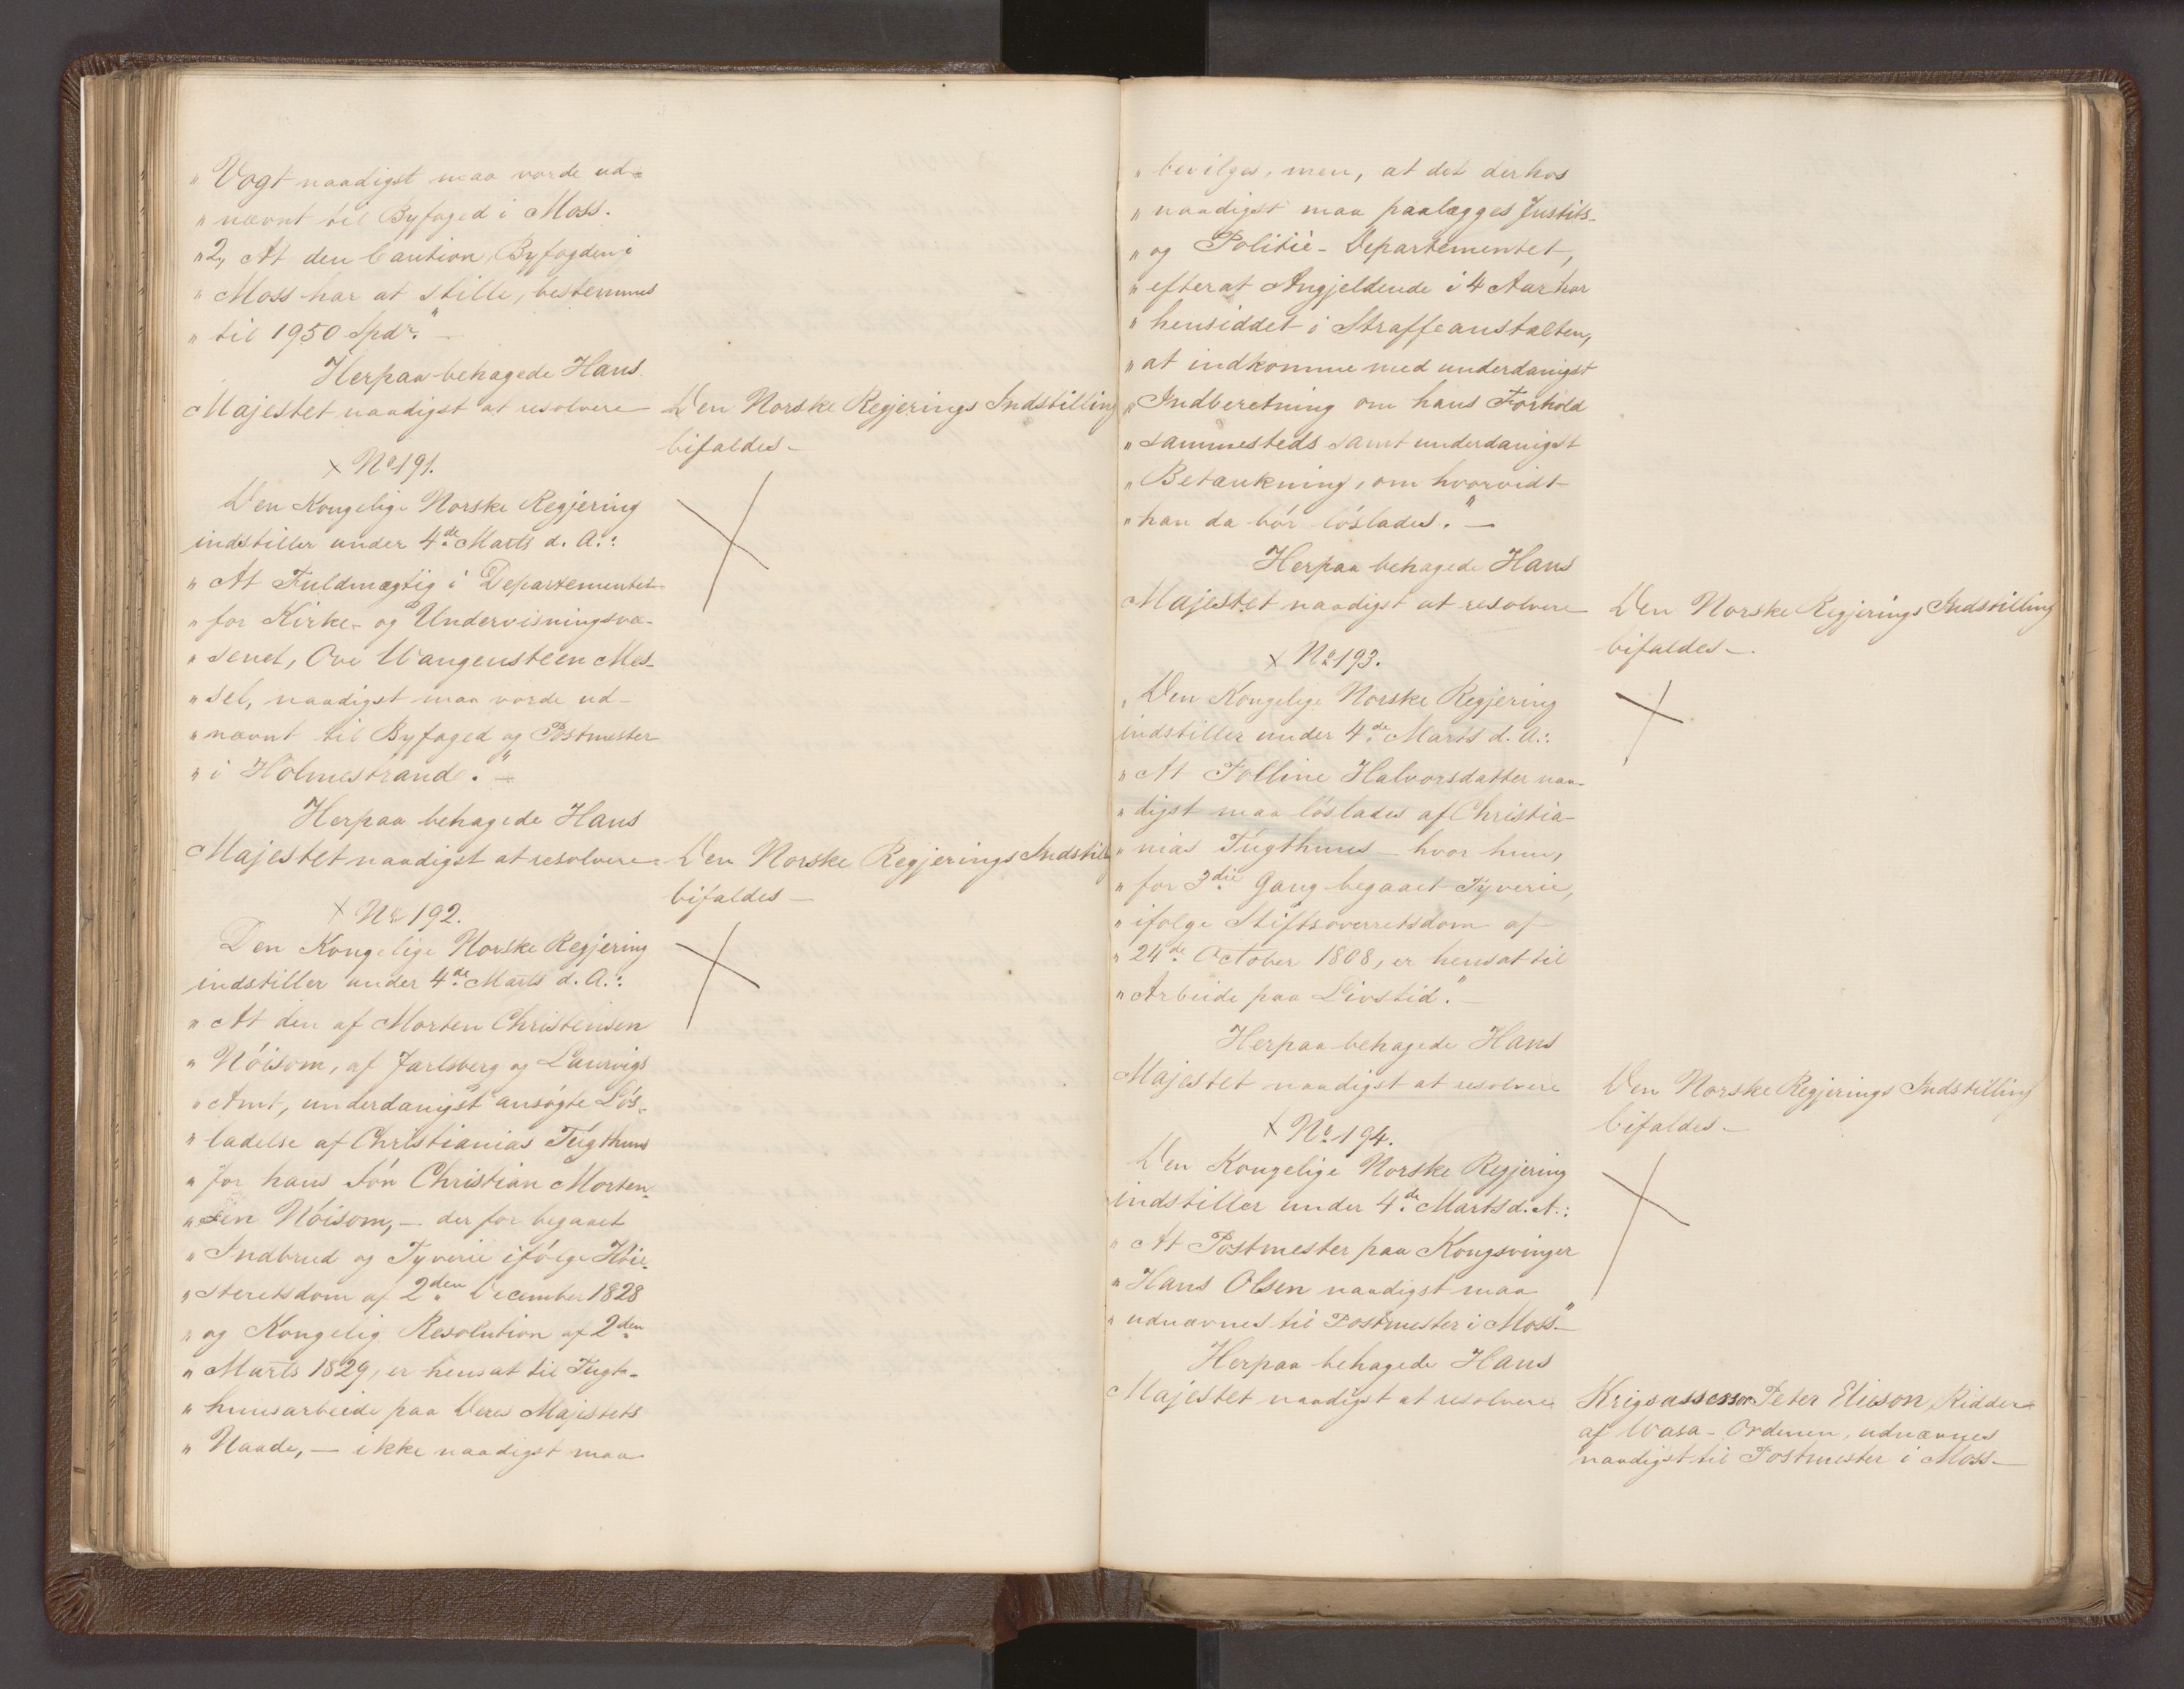 „Vogt naadigst maa vorde ud-
„nævnt til Byfoged i Moss.
„2, At den Caution, Byfogden i
„Moss har at stille, bestemmes
„til 1950 Spdr.“ –
Herpaa behagede Hans
Majestet naadigst at resolvere
Den Norske Regjerings Indstilling
bifaldes –
× No 191.
Den Kongelige Norske Regjering
indstiller under 4de Marts d. A.:
„At Fuldmægtig i Departementet
„for Kirke- og Undervisningsvæ-
„senet, Ove Wangensteen Mes-
„sel, naadigst maa vorde ud-
„nævnt til Byfoged og Postmester
„i Holmestrand.“ –
Herpaa behagede Hans
Majestet naadigst at resolvere
Den Norske Regjerings Indstill
bifaldes –
× No 192.
Den Kongelige Norske Regjering
indstiller under 4de Marts d. A.:
„At den af Morten Christensen
„Nöisom, af Jarlsberg og Laurvigs
„Amt, underdanigst ansøgte Lös-
„ladelse af Christianias Tugthuus
„for hans Sön Christian Morten-
„sen Nöisom, – der for begaaet
„Indbrud og Tyverie ifölge Höie-
„steretsdom af 2den December 1828
„og Kongelig Resolution af 2den
„Marts 1829, er hensat til Tugt-
„huusarbeide paa Deres Majestets
„Naade, – ikke naadigst maa
„bevilges, men, at det derhos
„naadigst maa paalægges Justits-
„og Politie-Departementet,
„efterat Angjeldende i 4 Aar har
„hensiddet i Straffeanstalten,
„at indkomme med underdanigst
„Indberetning om hans Forhold
„sammesteds samt underdanigst
„Betænkning, om hvorvidt
„han da bör löslades.“ –
Herpaa behagede Hans
Majestet naadigst at resolvere
Den Norske Regjerings Indstilling
bifaldes –
× No 193.
Den Kongelige Norske Regjering
indstiller under 4de Marts d. A.:
„At Polline Halvorsdatter naa-
„digst maa löslades af Christia-
„nias Tugthuus – hvor hun,
„for 3die Gang begaaet Tyverie,
„ifølge Stiftsoverretsdom af
„24de October 1808, er hensat til
„Arbeide paa Livstid.“ –
Herpaa behagede Hans
Majestet naadigst at resolvere
Den Norske Regjerings Indstilling
bifaldes –
× No 194.
Den Kongelige Norske Regjering
indstiller under 4de Marts d. A.:
„At Postmester paa Kongsvinger
„Hans Olsen naadigst maa
„udnævnes til Postmester i Moss“ –
Herpaa behagede Hans
Majestet naadigst at resolvere
Krigsassessor Peter Elieson, Ridder
af Wasa-Ordenen, udnævnes
naadigst til Postmester i Moss –